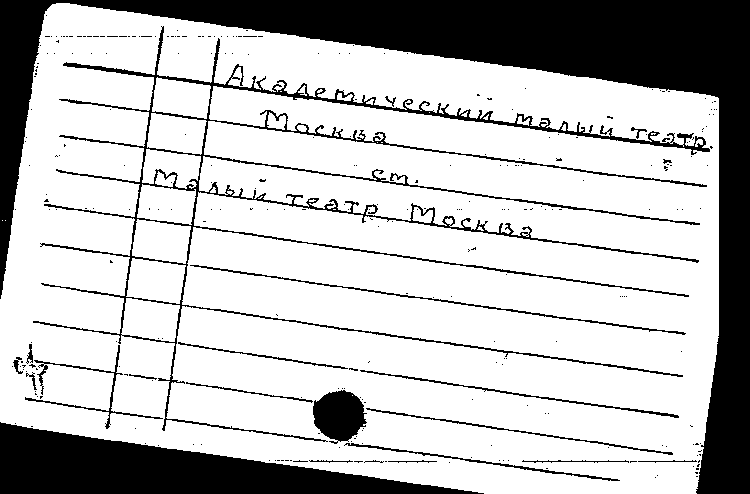 Академический малый театр.
Москва
см.
Малый театр Москва